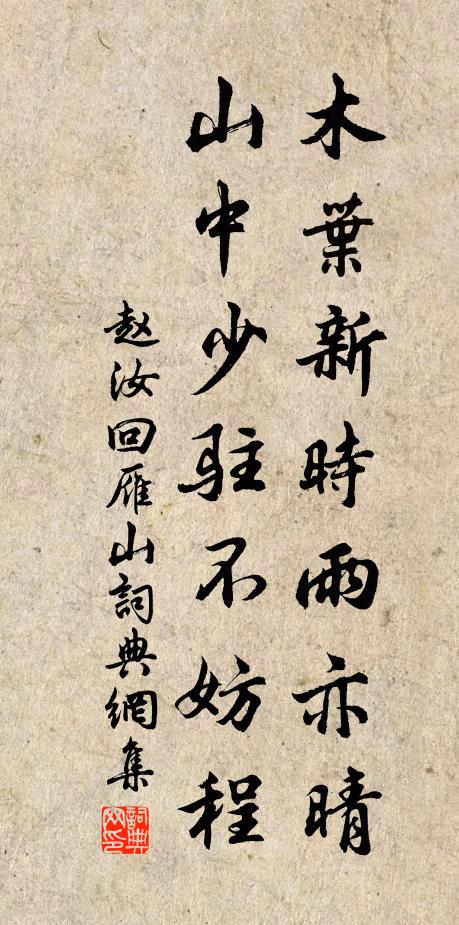 木葉新時雨亦晴
山中少駐不妨程
赵汝回雁山詞典網集
詞典网印